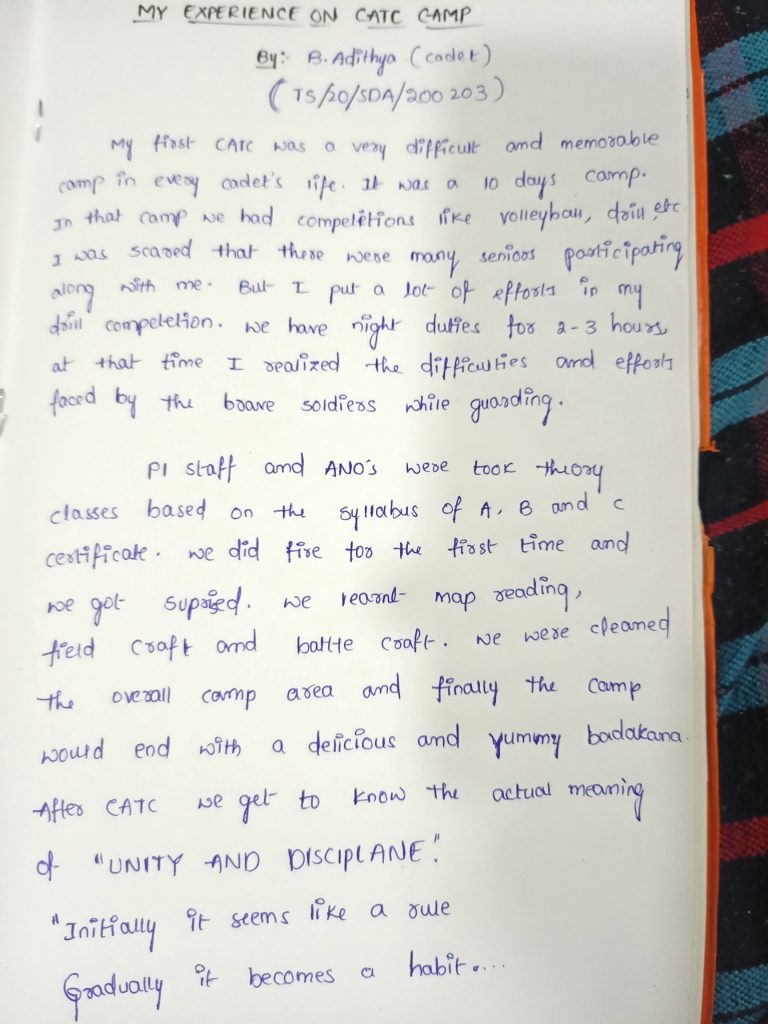 MY EXPERIENCE ON CATC CAMP
By:- B. Adithya (cadet)
(TS/20/SDA/200203)
My first CATC was a very difficult and memorable
camp in every cadet's life. It was a 10 days camp.
In that camp we had competitions like volleyball, drill, etc
I was scared that there were many seniors participating
along with me. But I put a lot of efforts in my
drill competetion. We have night duties for 2-3 hours,
at that time I realized the difficulties and efforts
faced by the brave soldiers while guarding.
PI staff and ANO's were took theory
classes based on the syllabus of A, B and C
certificate. We did fire for the first time and
we got suprised. We learnt map reading,
field craft and battle craft. We were cleaned
the overall camp area and finally the camp
would end with a delicious and yummy badakana.
After CATC we get to know the actual meaning
of "UNITY AND DISCIPLANE".
"Initially it seems like a rule
Gradually it becomes a habit....